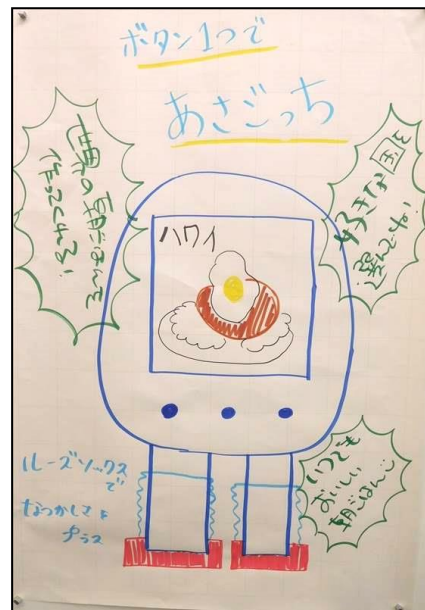 ボタン1つで
あさごっち
世界の朝ごはんを
作ってくれる!
好きな国を
選んでね!
ハワイ
ルーズソックス
で
なつかしさを
プラス
いつでも
おいしい
朝ごはん